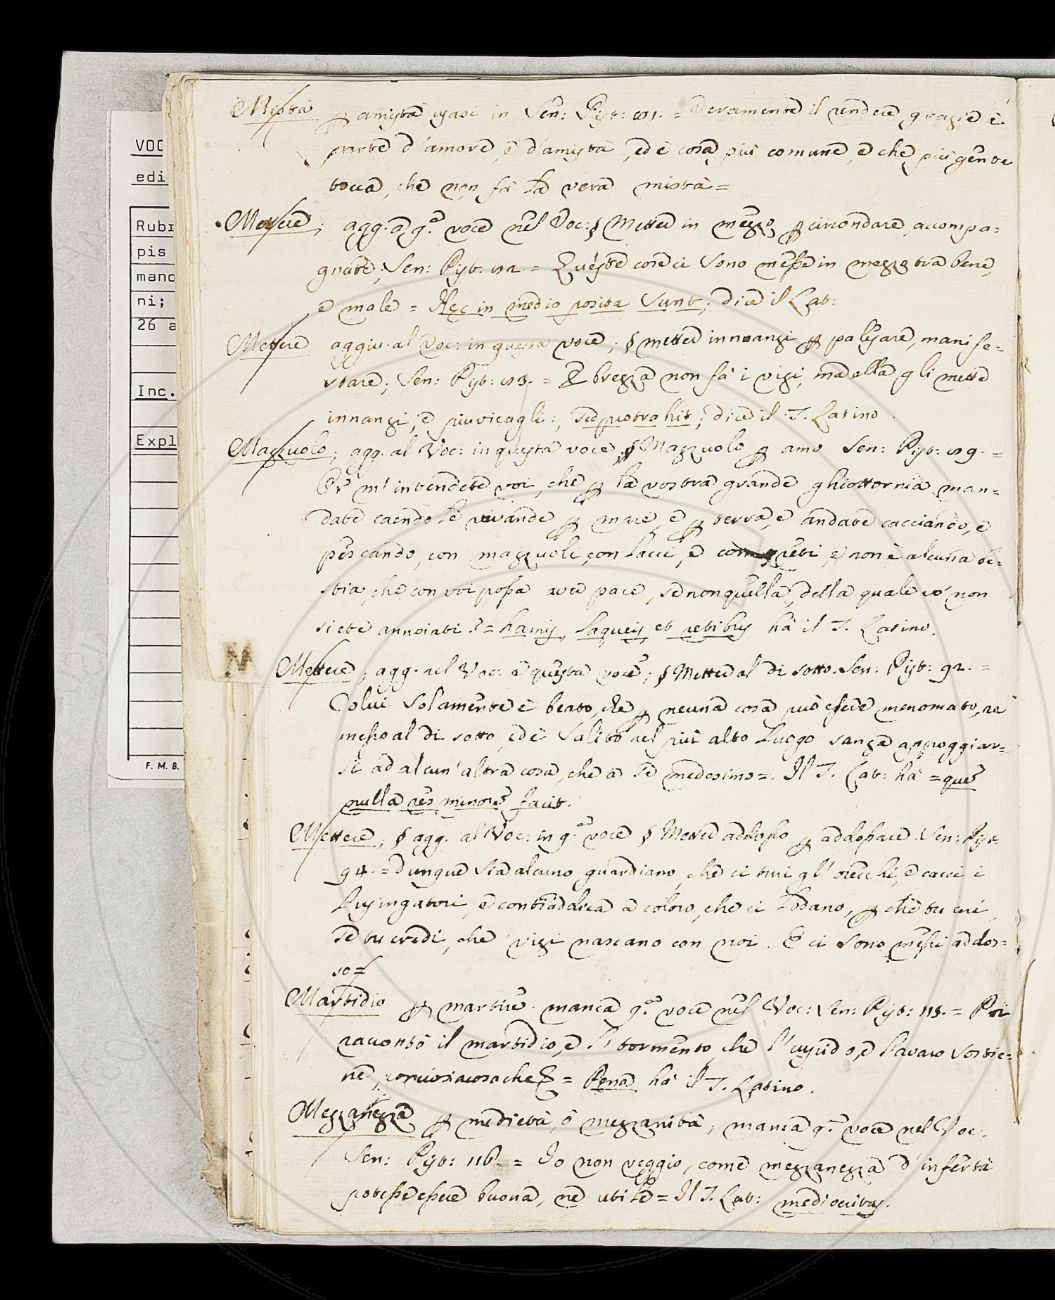 VOC
edi
Rubr
pis
manc
ni;
26 a
Inc.
Expl
F. M. 8.
N
Mistà p amistà usasi in Sen: Pist: = Veramente il rendere grazie è
parte d'amore, e d'amistà, ed è cosa più comune, e che più gente
tocca, che non fa la vera mistà =
Mettere; agg. a q.ª voce nel Voc: § Mettere in mezzo p circondare, accompa-
gnare; Sen: Pist: = Queste cose ci sono messe in mezzo tra bene,
e male = Hęc in medio posita sunt; dice il Lat:
Mettere aggiu. al Voc: in questa voce; § mettere innanzi p palesare, manife-
stare; Sen: Pist: = E brezza non fa i vizi, ma ella gli mette
innanzi, e piuvicagli; sed protrahit; dice il T. Latino.
Mazzuolo; agg. al Voc: in questa voce, § Mazzuolo p amo Sen: Pist: =
Or m'intendete voi, che p la vostra grande ghiottornia man-
date caendo le vivande p mare, e p terra, e andate cacciando, e
pescando, con mazzuoli, con lacci, e con reti, e non è alcuna be-
stia, che con voi possa aver pace, se non quella, della quale voi non
siete annoiati? = hamis, laqueis, et retibus ha il T. Latino.
Mettere; agg. nel Voc: a questa voce; § Metter al di sotto. Sen: Pist: 92. =
Colui solamente è beato, che p neuna cosa può essere menomato, nè
messo al di sotto, ed è salito nel più alto luogo sanza appoggiar-
si ad alcun'altra cosa, che a se medesimo =. Il T. Lat: ha = quem
nulla res minorem facit.
Mettere; § agg. al Voc: in q.ª voce § Metter addosso p addossare Sen: Pist:
94. = Dunque sia alcuno guardiano, che ci turi gl'orecchi, e cacci i
lusingatori, e contraddica a coloro, che ci lodano, p che tu eri,
se tu credi, che i vizi nascano con noi. E ci sono messi addos-
so =
Martidio p martire. manca q.ª voce nel Voc: Sen: Pist: 115. = Poi
raccontò il martidio, e il tormento, che l'cupido, e l'avaro sostie-
ne, conciosiacosache & = Pena ha il T. Latino.
Mezzanezza p medietà, ò mezzanità; manca q.ª voce nel Voc.
Sen: Pist: 116. = Io non veggio, come mezzanezza d'infertà
potesse essere buona, nè utile = Il T. Lat: mediocritas.